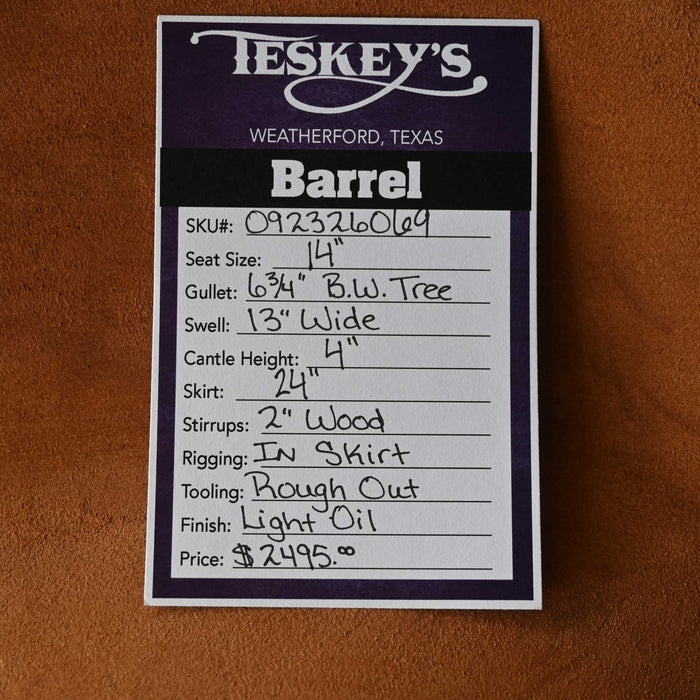 TESKEY'S
WEATHERFORD, TEXAS
Barrel
SKU#: 092326069
Seat Size: 14"
Gullet: 6 3/4" B.W. Tree
Swell: 13" Wide
Cantle Height: 4"
Skirt: 24"
Stirrups: 2" Wood
Rigging: In Skirt
Tooling: Rough Out
Finish: Light Oil
Price: $2495.00